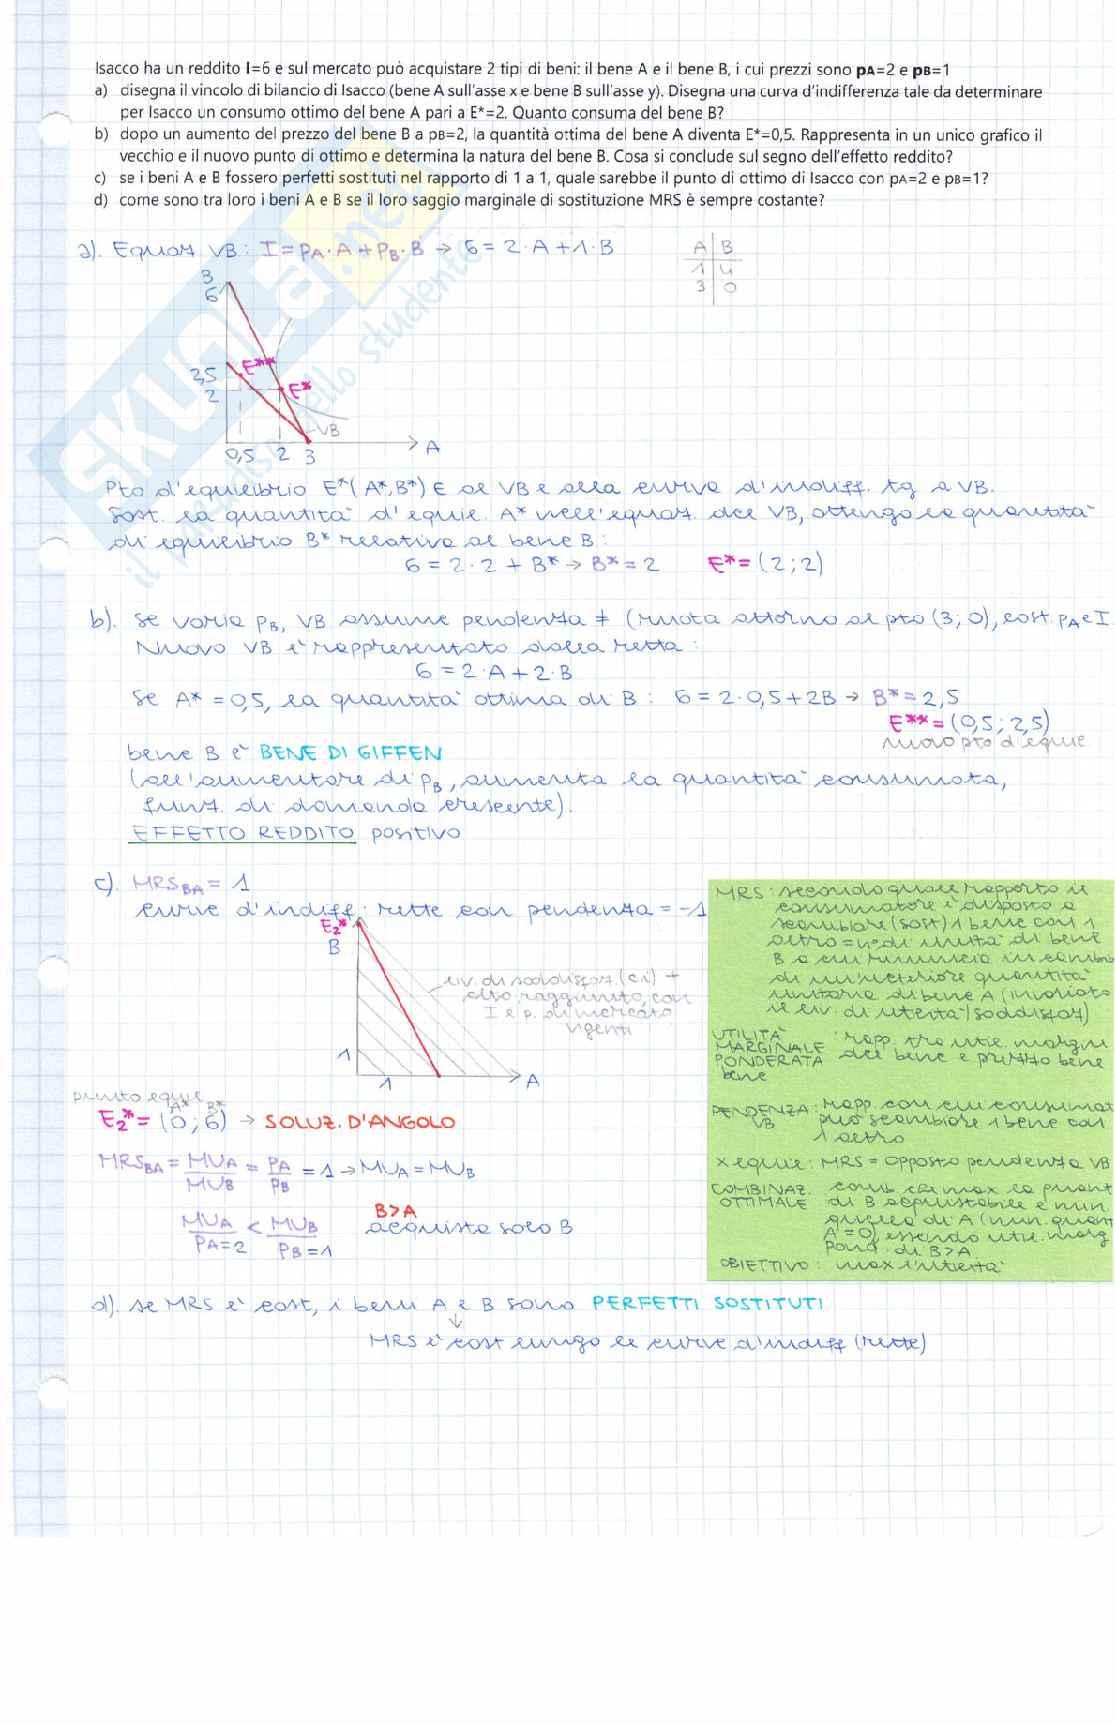 Isacco ha un reddito I=6 e sul mercato può acquistare 2 tipi di beni: il bene A e il bene B, i cui prezzi sono pA=2 e pB=1
a) disegna il vincolo di bilancio di Isacco (bene A sull'asse x e bene B sull'asse y). Disegna una curva d'indifferenza tale da determinare
per Isacco un consumo ottimo del bene A pari a E*=2. Quanto consuma del bene B?
b) dopo un aumento del prezzo del bene B a pB=2, la quantità ottima del bene A diventa E*=0,5. Rappresenta in un unico grafico il
vecchio e il nuovo punto di ottimo e determina la natura del bene B. Cosa si conclude sul segno dell'effetto reddito?
c) se i beni A e B fossero perfetti sostituti nel rapporto di 1 a 1, quale sarebbe il punto di ottimo di Isacco con pA=2 e pB=1?
d) come sono tra loro i beni A e B se il loro saggio marginale di sostituzione MRS è sempre costante?
a). Equaz. VB: I = pA·A + pB·B → 6 = 2·A + 1·B
A B
1 4
3 0
3
6
E**
2,5
2
E*
VB
0,5 2 3
A
Pto d'equilibrio E*(A*,B*) ∈ al VB e alla curva d'indiff. tg a VB.
Sost. la quantità d'equil. A* nell'equaz. del VB, ottengo la quantità
di equilibrio B* relativa al bene B:
6 = 2·2 + B* → B* = 2 E* = (2;2)
b). Se varia pB, VB assume pendenza ≠ (ruota attorno al pto (3;0), cost. pA e I
Nuovo VB è rappresentato dalla retta:
6 = 2·A + 2·B
Se A* = 0,5, la quantità ottima di B: 6 = 2·0,5 + 2B → B* = 2,5
E** = (0,5; 2,5)
nuovo pto d'equil
bene B è BENE DI GIFFEN
(all'aumentare di pB, aumenta la quantità consumata,
funz. di domanda crescente).
EFFETTO REDDITO positivo
c). MRS BA = 1
curve d'indiff.: rette con pendenza = -1
E2*
B
liv. di soddisfaz. (c.i.) +
alto raggiunto, con
I e p. di mercato
vigenti
1
1
A
punto equil
A* B*
E2* = (0; 6) → SOLUZ. D'ANGOLO
MRS BA = MUA/MUB = pA/pB = 1 → MUA = MUB
B>A
MUA/pA=2 < MUB/pB=1 acquista solo B
MRS: secondo quale rapporto il
consumatore è disposto a
scambiare (sost) 1 bene con 1
altro = n° di unità di bene
B a cui rinuncia in cambio
di un'ulteriore quantità
unitaria di bene A (invariato
il liv. di utilità/soddisfaz)
UTILITÀ MARGINALE PONDERATA bene: rapp. tra util. margin
del bene e prezzo bene
PENDENZA VB: rapp. con cui consumat
può scambiare 1 bene con
1 altro
x equil: MRS = opposto pendenza VB
COMBINAZ. OTTIMALE comb che max la quant
di B acquistabile e min.
quella di A (min. quant
A = 0), essendo util. marg
pond. di B>A
OBIETTIVO: max l'utilità
d). se MRS è cost, i beni A e B sono PERFETTI SOSTITUTI
↓
MRS è cost lungo le curve d'indiff (rette)
SKUOLA.net
il paradiso dello studente